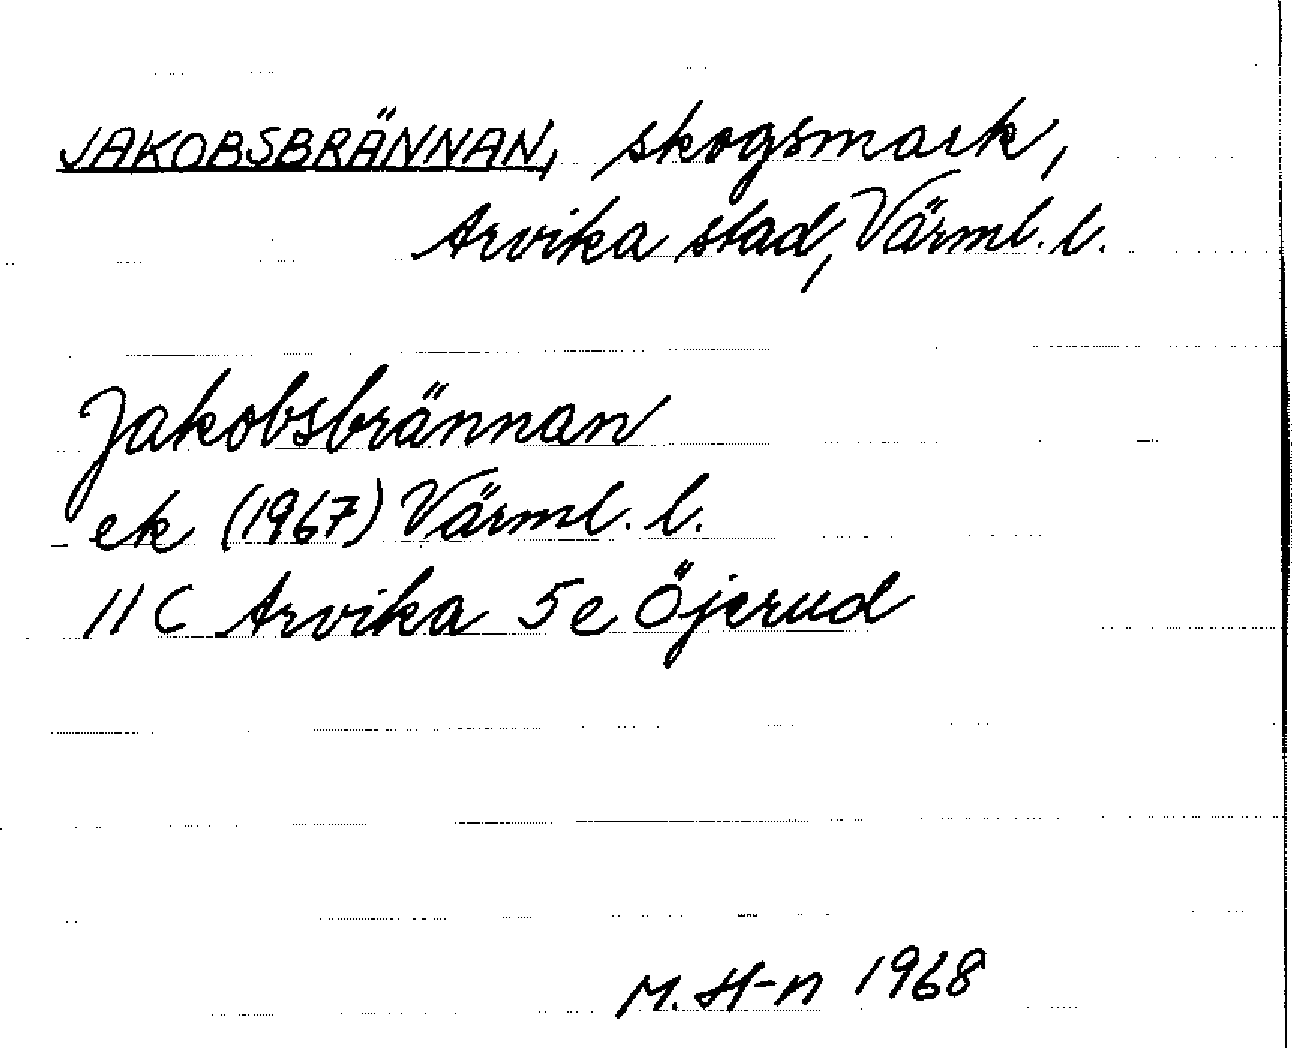 JAKOBSBRÄNNAN, skogsmark,
Arvika stad, Värml. l.
Jakobsbrännan
ek (1967) Värml. l.
11 C Arvika 5e Öjerud
M. H-n 1968